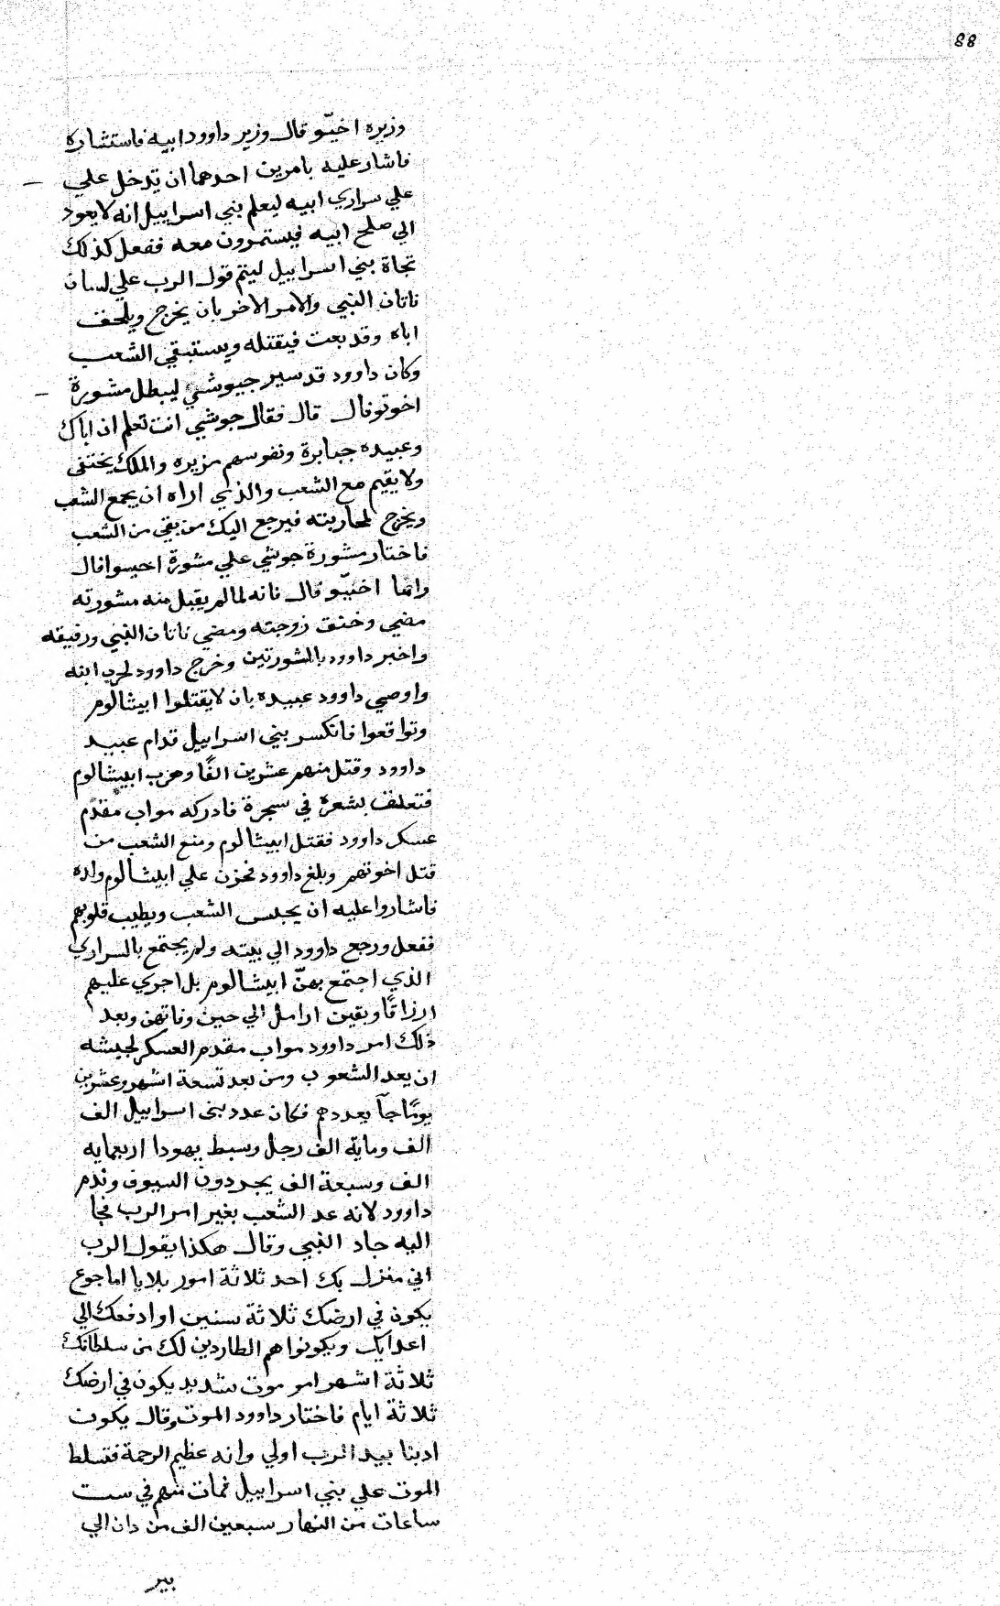 88
وزيره اخيتو قال وزير داوود ابيه فاستشاره
فاشار عليه بامرين احدهما ان تدخل علي
علي سراري ابيه ليعلم بني اسراييل انه لا يعود
الي صلح ابيه فيستمرون معه ففعل كذلك
تجاة بني اسراييل ليتم قول الرب علي لسان
ناتان النبي والامر الاخر بان يخرج ويلحق
اباه وقد بعت فيقتله ويستبقي الشعب
وكان داوود قد سير جيوشي ليبطل مشورة
اخوتوفال قال فقال جوشي انت تعلم ان اباك
وعبيده جبابرة ونفوسهم مزيره والملك يختفي
ولا يقيم مع الشعب والذي اراه ان يجمع الشعب
ويخرج لمحاربته فيرجع اليك من بقي من الشعب
فاختار مشورة جوشي علي مشورة احيسوافال
واما اختيو قال فانه لما لم يقبل منه مشورته
مضي وخنق زوجته ومضي ناتان النبي ورفيقه
واخبر داوود بالشورتين وخرج داوود لحرب ابنه
واوصي داوود عبيده بان لا يقتلوا ابيشالوم
وتواقعوا فانكسر بني اسراييل قدام عبيد
داوود وقتل منهم عشرين الفًا وهرب ابيشالوم
فتعلق بشعره في سجرة فادركه مواب مقدم
عسكر داوود فقتل ابيشالوم ومنع الشعب من
قتل اخوتهم وبلغ داوود فحزن علي ابيشالوم ولده
فاشاروا عليه ان يجلس الشعب ويطيب قلوبهم
ففعل ورجع داوود الي بيته ولم يجتمع بالسراري
الذي اجتمع بهنّ ابيشالوم بل اجري عليهم
ارزاقًا وبقين ارامل الي حين وفاتهن وبعد
ذلك امر داوود مواب مقدم العسكر لجيشه
ان يعد الشعوب ومن بعد تسعة اشهر وعشرين
يومًا جآ بعددهم فكان عدد بني اسراييل الف
الف وماية الف رجل وسبط يهودا اربعمايه
الف وسبعة الف يجردون السيوف وندم
داوود لانه عد الشعب بغير امر الرب فجا
اليه جاد النبي وقال هكذا يقول الرب
اني منزل بك احد ثلاثة امور بلايا اما جوع
يكون في ارضك ثلاثة سنين او ادفعك الي
اعدايك ويكونوا هم الطاردين لك من سلطانك
ثلاثة اشهر امر موت شديد يكون في ارضك
ثلاثة ايام فاختار داوود الموت وقال يكون
ادبنا بيد الرب اولي وانه عظيم الرحمة فتسلط
الموت علي بني اسراييل فمات منهم في ست
ساعات من النهار سبعين الف من دان الي
بير